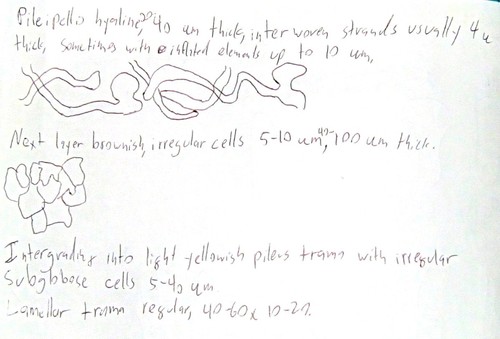 Pileipellis hyaline, 20-40 um thick, interwoven strands usually 4 u
thick, sometimes with inflated elements up to 10 um,
Next layer brownish, irregular cells 5-10 um, 40-100 um thick.
Intergrading into light yellowish pileus trama with irregular
Subglobose cells 5-40 um
Lamellar trama regular, 40-60 x 10-20.